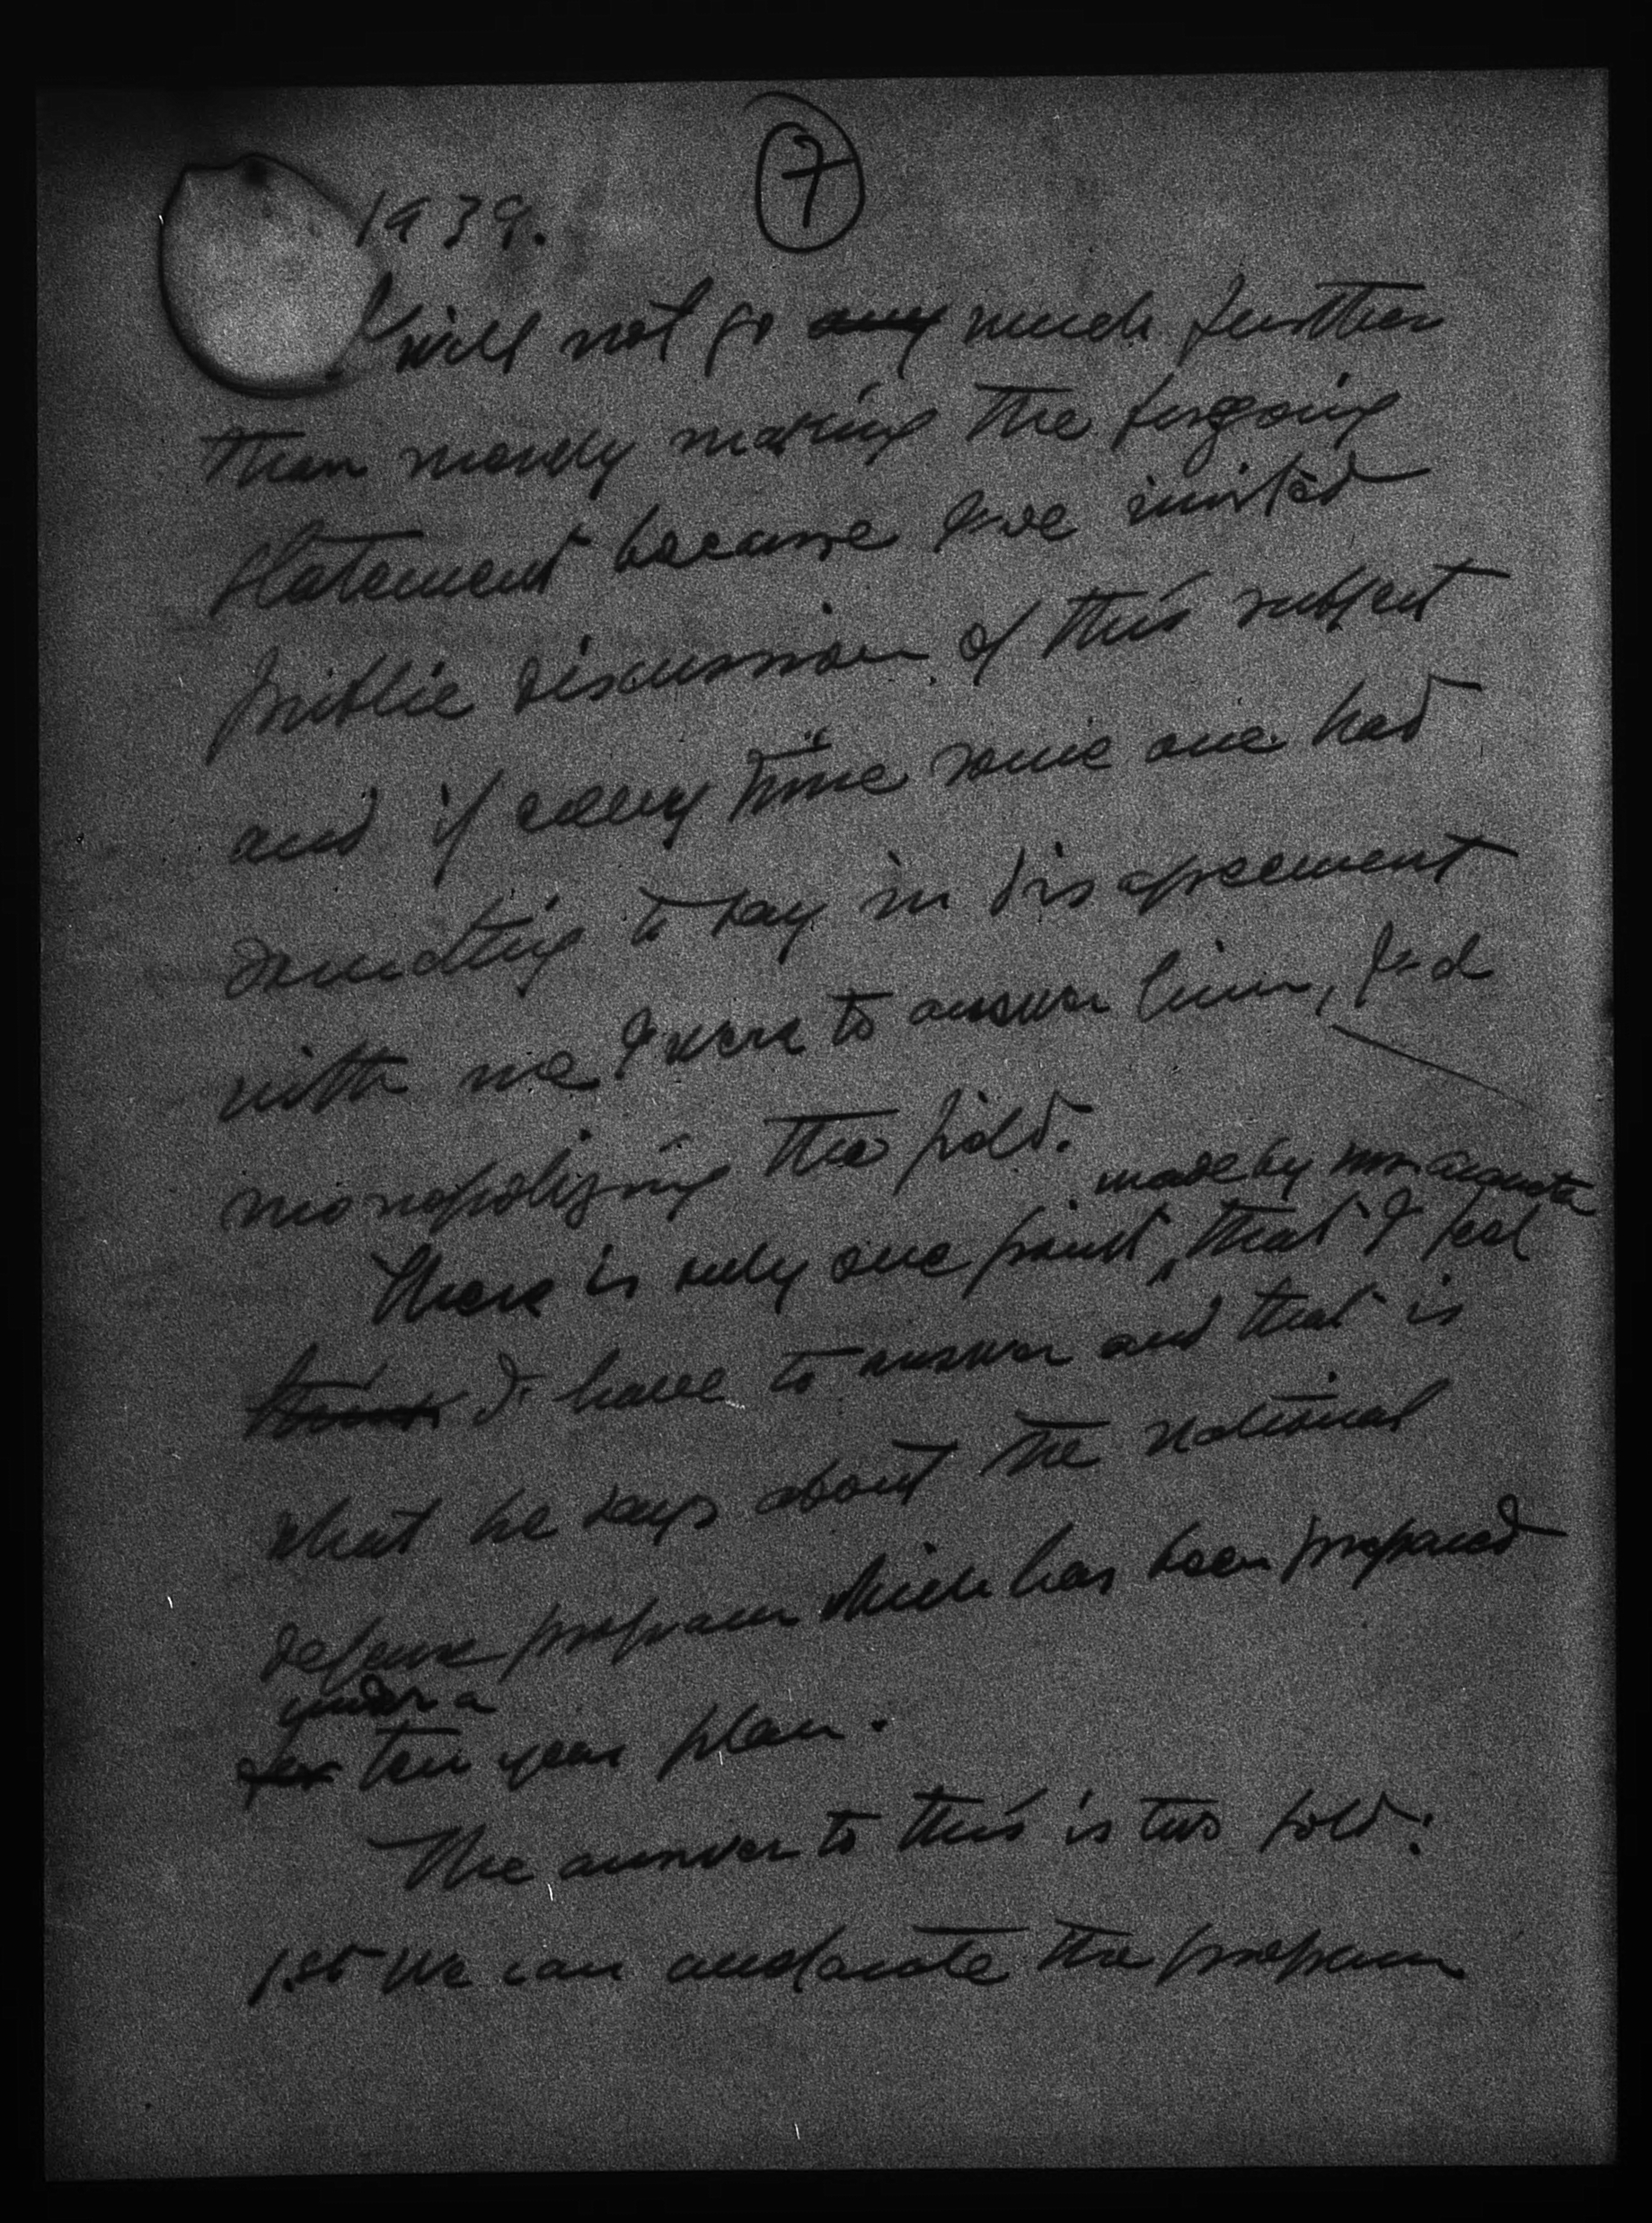 7
1939.
I will not go any much further
than merely making the forgoing
statement because I've invited
public discussion of this subject
and if every time some one had
something to say in disagreement
with me I were to answer him, I'd
monopolizing the field.
made by
There is only one point, that I feel
think I have to answer and that is
what he says about the national
defense program which has been prepared
under a
for ten year plan.
The answer to this is two fold:
1st We can accelerate the program